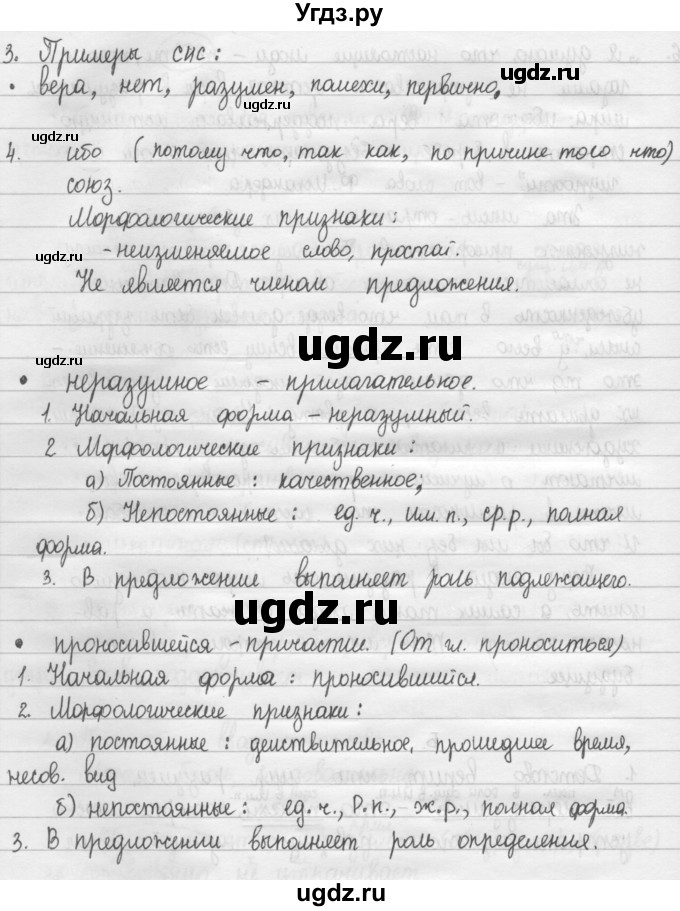 Угдз.ру
3. Примеры СКС:
• вера, нет, разумен, помехи, первично,
ugdz.ru
ugdz.ru
ugdz.ru
4. ибо (потому что, так как, по причине того что)
союз.
ugdz.ru
Морфологические признаки:
-неизменяемое слово, простой.
Не является членом предложения.
ugdz.ru
ugdz.ru
ugdz.ru
• неразумное – прилагательное.
1. Начальная форма – неразумный.
2 Морфологические признаки:
а) Постоянные: качественное;
б) Непостоянные: ед. ч., им. п., ср. р., полная
форма.
ugdz.ru
3. В предложении выполняет роль подлежащего.
ugdz.ru
• проносившейся – причастие. (От гл. проноситься)
1. Начальная форма: проносившийся.
2. Морфологические признаки:
ugdz.ru
а) постоянные: действительное, прошедшее время,
несов. вид
б) непостоянные: ед. ч., Р. п., ж. р., полная форма.
ugdz.ru
ugdz.ru
3. В предложении выполняет роль определения.
ugdz.ru